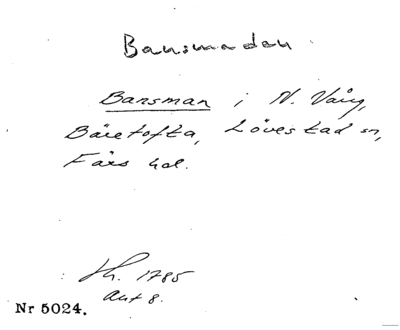 Bansmaden
Bansman i N. Vång,
Bäretofta, Lövestad sn,
Färs hd.
Sk. 1785
Akt 8.
Nr 5024.